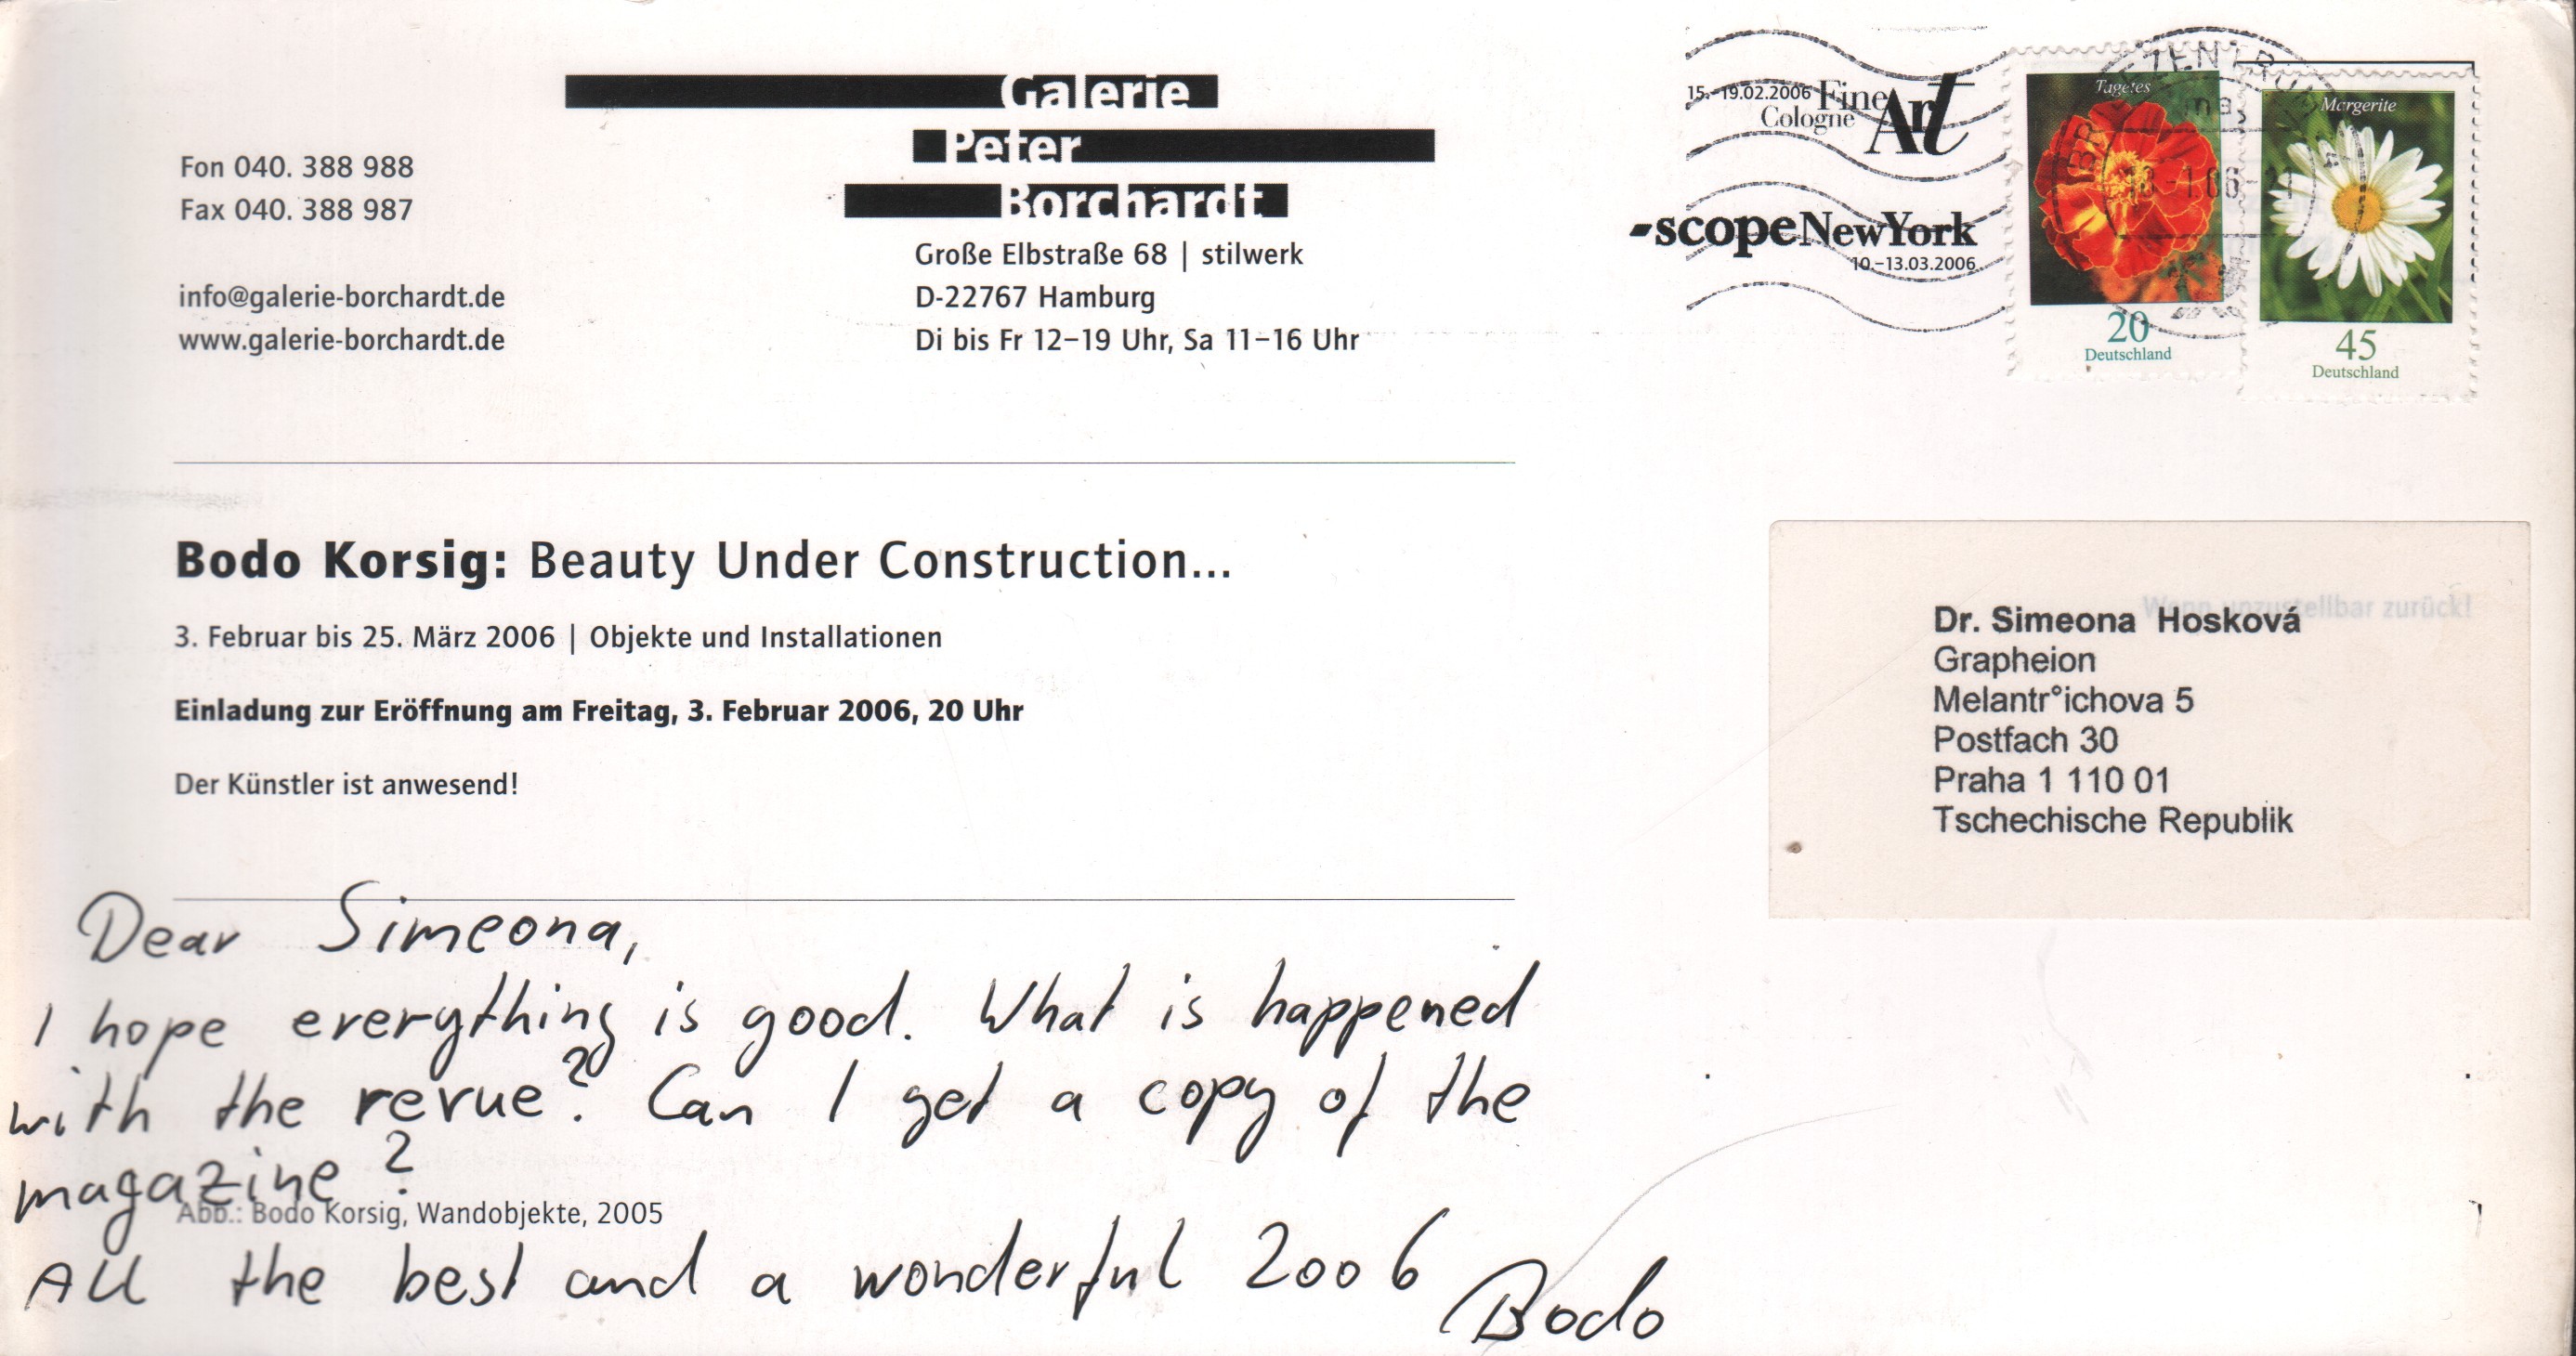 Galerie
Peter
Borchardt
Fon 040. 388 988
Fax 040. 388 987
info@galerie-borchardt.de
www.galerie-borchardt.de
Große Elbstraße 68 | stilwerk
D-22767 Hamburg
Di bis Fr 12–19 Uhr, Sa 11–16 Uhr
15.–19.02.2006 Fine Art
Cologne
-scopeNewYork
10.–13.03.2006
Tagetes
20
Deutschland
Margerite
45
Deutschland
Bodo Korsig: Beauty Under Construction...
3. Februar bis 25. März 2006 | Objekte und Installationen
Einladung zur Eröffnung am Freitag, 3. Februar 2006, 20 Uhr
Der Künstler ist anwesend!
Wenn unzustellbar zurück!
Dr. Simeona Hosková
Grapheion
Melantr°ichova 5
Postfach 30
Praha 1 110 01
Tschechische Republik
Dear Simeona,
I hope everything is good. What is happened
with the revue? Can I get a copy of the
magazine?
Abb.: Bodo Korsig, Wandobjekte, 2005
All the best and a wonderful 2006
Bodo